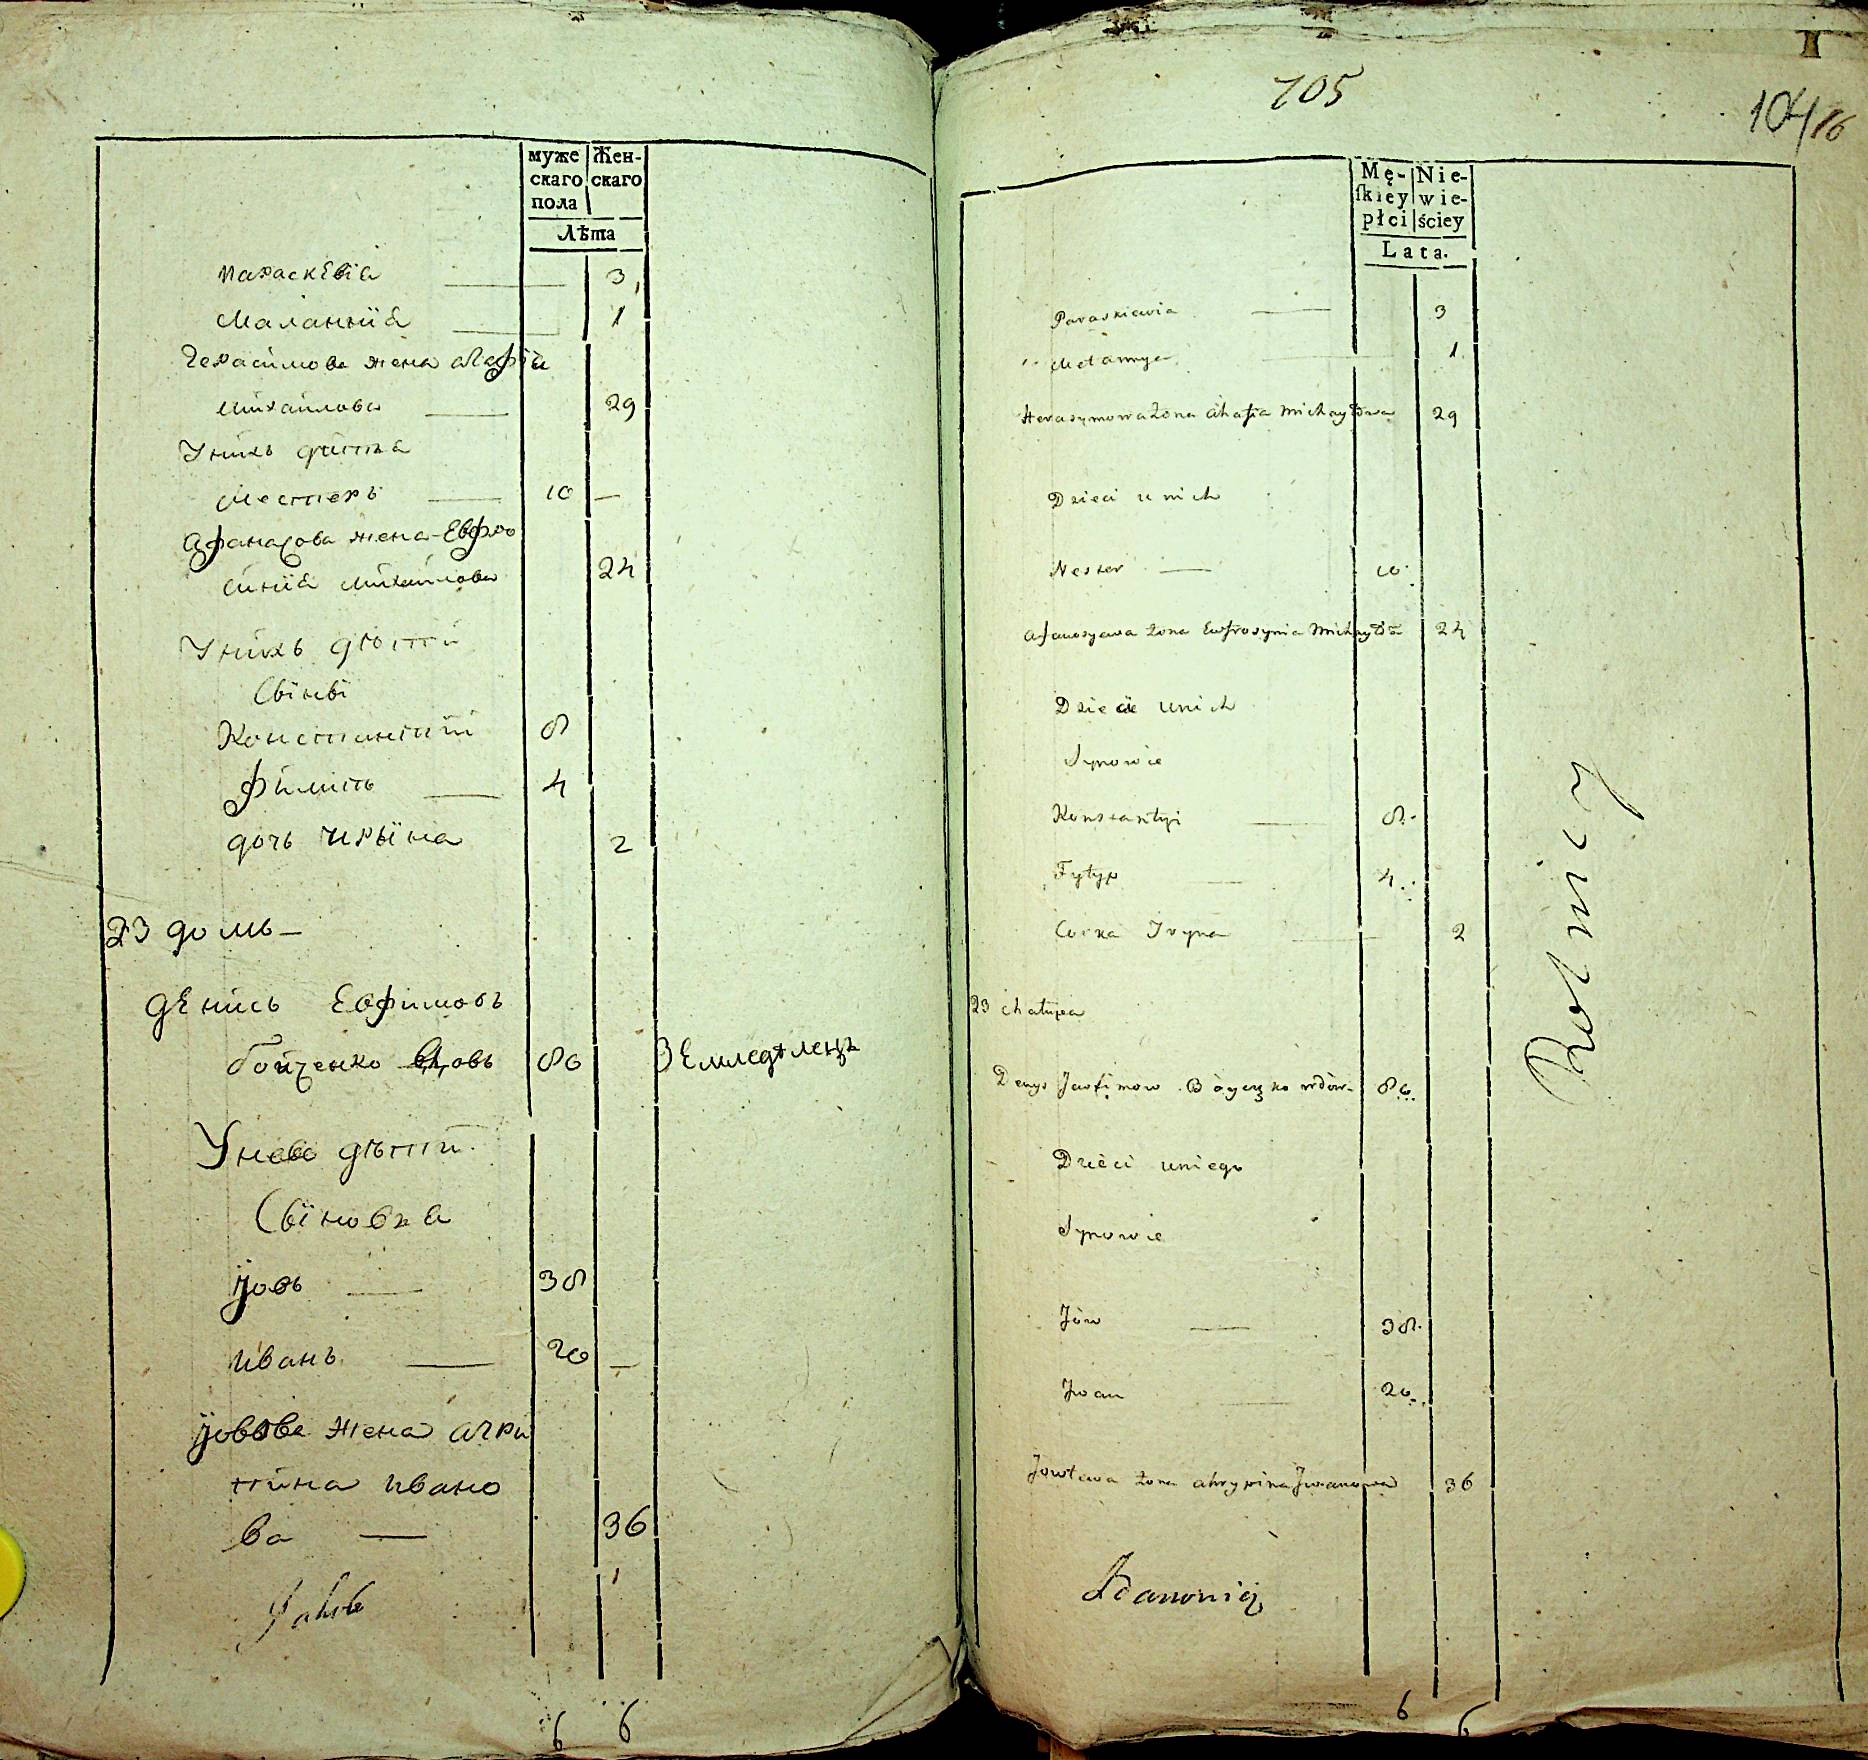 муже
скаго
пола
Жен-
скаго
Лѣта
Параскевіа 3
Маланиіа 1
Герасимова жена Агафіи
Михаилова 29
У нихъ дити
Нестеръ 10 —
Афанасова жена Евфро
синиіа Михаилова 24
У нихъ дѣти
Сыны
Константій 8
Филипъ 4
дочь Ирына 2
23 домъ —
Денисъ Евфимовъ
Бойченко вдовъ 80 Земледѣлецъ
У нево дѣти
Сыновья
Іовъ 38
Иванъ 20 —
Іовова жена Агри
пина Ивано
ва 36
6 6
705
104 16
Mę-
ſkiey
płci
Nie-
wie-
ściey
Lata.
Paraskiewia 3
Mełannya 1
Herasymowa żona Ahafia Michayłowa 29
Dzieci u nich
Nester 10
Afanasyewa żona Ewfrosynia Michayłowa 24
Dziecie u nich
Synowie
Konstantyi 8
Fyłyp 4
Corka Iryna 2
23 chałupa
Denys Jawfimow Boyczko wdow. 80
Dzieci u niego
Synowie
Jow 38
Jwan 20
Jowlewa żona Ahrypina Jwanowa 36
Rolnicy
6 6